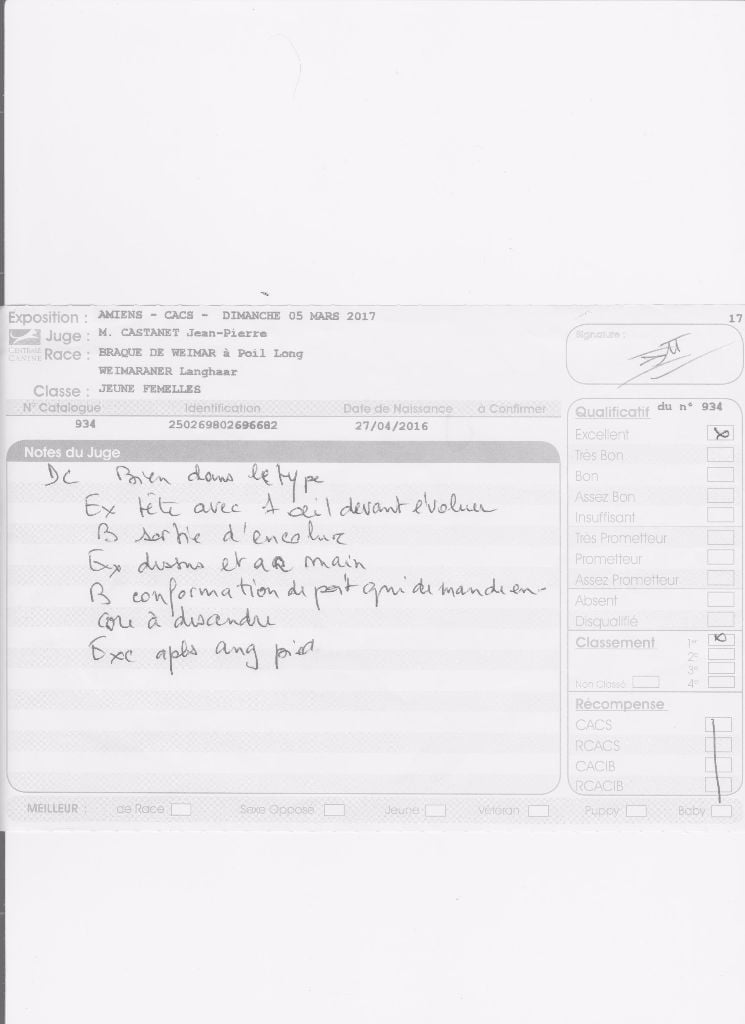 Exposition : AMIENS - CACS - DIMANCHE 05 MARS 2017
17
CENTRALE CANINE
Juge : M. CASTANET Jean-Pierre
Race : BRAQUE DE WEIMAR à Poil Long
WEIMARANER Langhaar
Classe : JEUNE FEMELLES
Signature :
N° Catalogue Identification Date de Naissance à Confirmer
934 250269802696682 27/04/2016
Notes du Juge
DC Bien dans le type
Ex tête avec 1 oeil devant évoluer
B sortie d'encolure
Ex dessus et main
B conformation de poit qui demande en-
core à descendre
Exc apbs ang pied
Qualificatif du n° 934
Excellent
Très Bon
Bon
Assez Bon
Insuffisant
Très Prometteur
Prometteur
Assez Prometteur
Absent
Disqualifié
Classement 1er
2e
3e
Non Classé 4e
Récompense
CACS
RCACS
CACIB
RCACIB
MEILLEUR : de Race Sexe Opposé Jeune Vétéran Puppy Baby